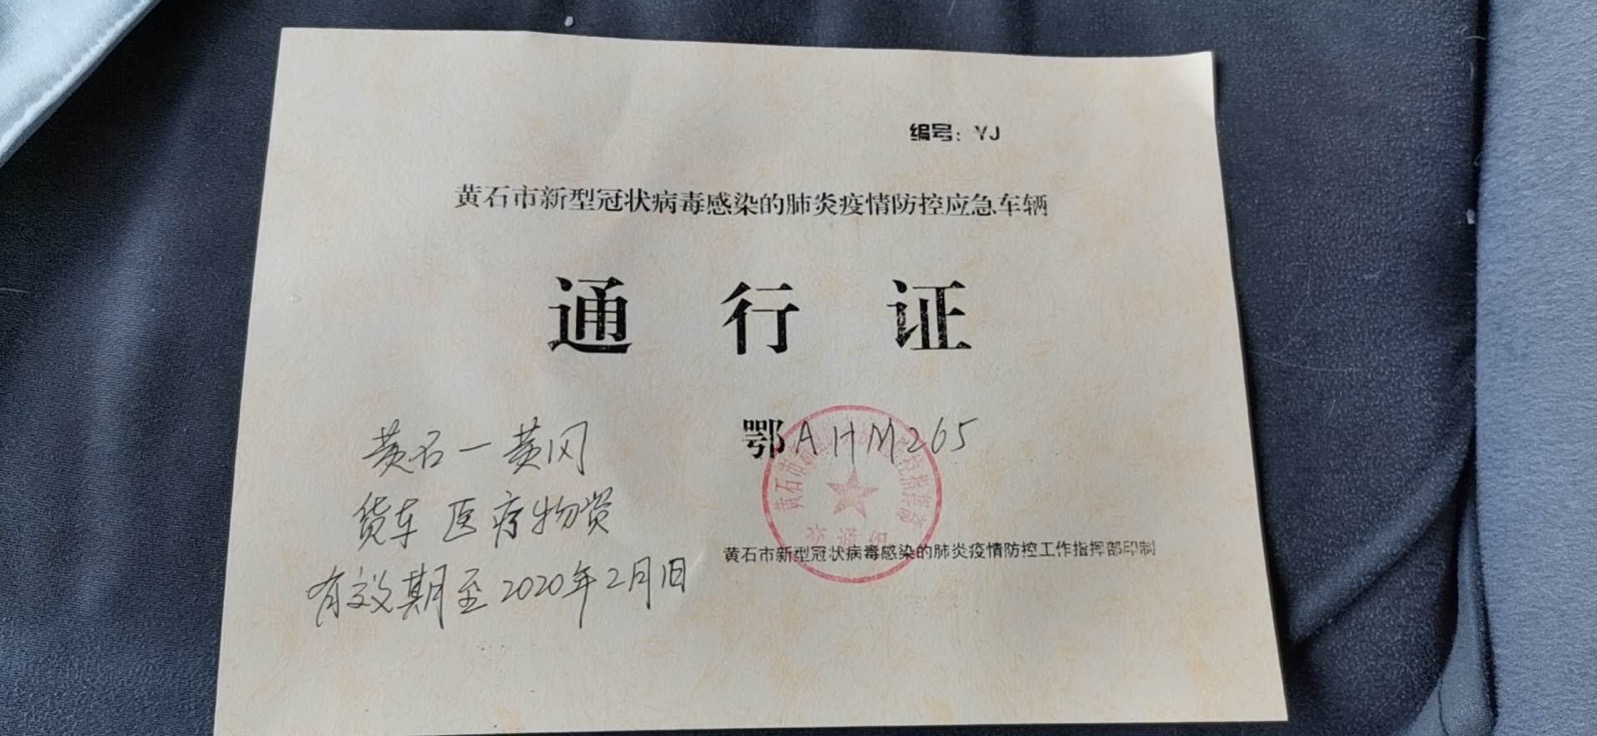 编号：YJ
黄石市新型冠状病毒感染的肺炎疫情防控应急车辆
通行证
鄂AHM265
黄石一黄冈
货车 医疗物资
有效期至2020年2月1日
黄石市新型冠状病毒感染的肺炎疫情防控工作指挥部印制
交通组